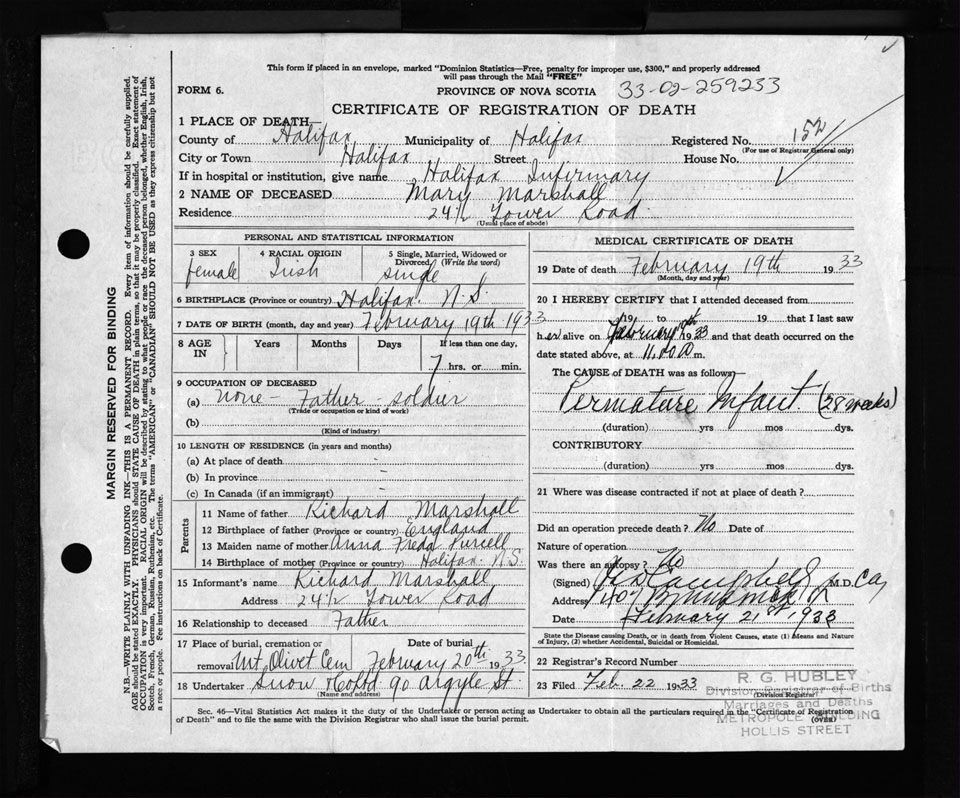 This form if placed in an envelope, marked "Dominion Statistics—Free, penalty for improper use, $300," and properly addressed
will pass through the Mail "FREE"
FORM 6.
PROVINCE OF NOVA SCOTIA
33-02-259233
CERTIFICATE OF REGISTRATION OF DEATH
1 PLACE OF DEATH
County of Halifax Municipality of Halifax Registered No. 152
(For use of Registrar General only)
City or Town Halifax Street House No.
If in hospital or institution, give name Halifax Infirmary
2 NAME OF DECEASED Mary Marshall
Residence 24½ Tower Road
(Usual place of abode)
PERSONAL AND STATISTICAL INFORMATION
3 SEX female
4 RACIAL ORIGIN Irish
5 Single, Married, Widowed or
Divorced (Write the word)
single
6 BIRTHPLACE (Province or country) Halifax N.S.
7 DATE OF BIRTH (month, day and year) February 19th 1933
8 AGE IN
Years Months Days If less than one day,
7 hrs. or min.
9 OCCUPATION OF DECEASED
(a) none - Father soldier
(Trade or occupation or kind of work)
(b)
(Kind of industry)
10 LENGTH OF RESIDENCE (in years and months)
(a) At place of death
(b) In province
(c) In Canada (if an immigrant)
Parents
11 Name of father Richard Marshall
12 Birthplace of father (Province or country) England
13 Maiden name of mother Anna Freda Purcell
14 Birthplace of mother (Province or country) Halifax N.S.
15 Informant's name Richard Marshall
Address 24½ Tower Road
16 Relationship to deceased Father
17 Place of burial, cremation or Date of burial
removal Mt. Olivet Cem February 20th 1933
18 Undertaker Snow & Co Ltd 90 Argyle St.
(Name and address)
MEDICAL CERTIFICATE OF DEATH
19 Date of death February 19th 1933
(Month, day and year)
20 I HEREBY CERTIFY that I attended deceased from
19 to 19 that I last saw
her alive on February 19th 1933 and that death occurred on the
date stated above, at 11.00 m.
The CAUSE of DEATH was as follows:—
Permature Infant. (28 weeks)
(duration) yrs mos dys.
CONTRIBUTORY
(duration) yrs mos dys.
21 Where was disease contracted if not at place of death?
Did an operation precede death? No Date of
Nature of operation
Was there an autopsy? No
(Signed) Campbell M.D.
Address 407
Date February 21st, 1933
State the Disease causing Death, or in death from Violent Causes, state (1) Means and Nature
of Injury, (2) whether Accidental, Suicidal or Homicidal.
22 Registrar's Record Number
23 Filed Feb. 22 1933
(Division Registrar)
R. G. HUBLEY
Division Registrar of Births
Marriages and Deaths
METROPOLE BUILDING
HOLLIS STREET
Sec. 46—Vital Statistics Act makes it the duty of the Undertaker or person acting as Undertaker to obtain all the particulars required in the "Certificate of Registration
of Death" and to file the same with the Division Registrar who shall issue the burial permit.
(OVER)
MARGIN RESERVED FOR BINDING
N.B.—WRITE PLAINLY WITH UNFADING INK—THIS IS A PERMANENT RECORD. Every item of information should be carefully supplied.
AGE should be stated EXACTLY. PHYSICIANS should STATE CAUSE OF DEATH in plain terms, so that it may be properly classified. Exact statement of
OCCUPATION is very important. RACIAL ORIGIN will be described by stating to what people or race the deceased person belonged, whether English, Irish,
Scotch, French, German, Russian, Ruthenian, etc. The terms "AMERICAN" or "CANADIAN" SHOULD NOT BE USED as they express citizenship but not
a race or people. See instructions on back of Certificate.